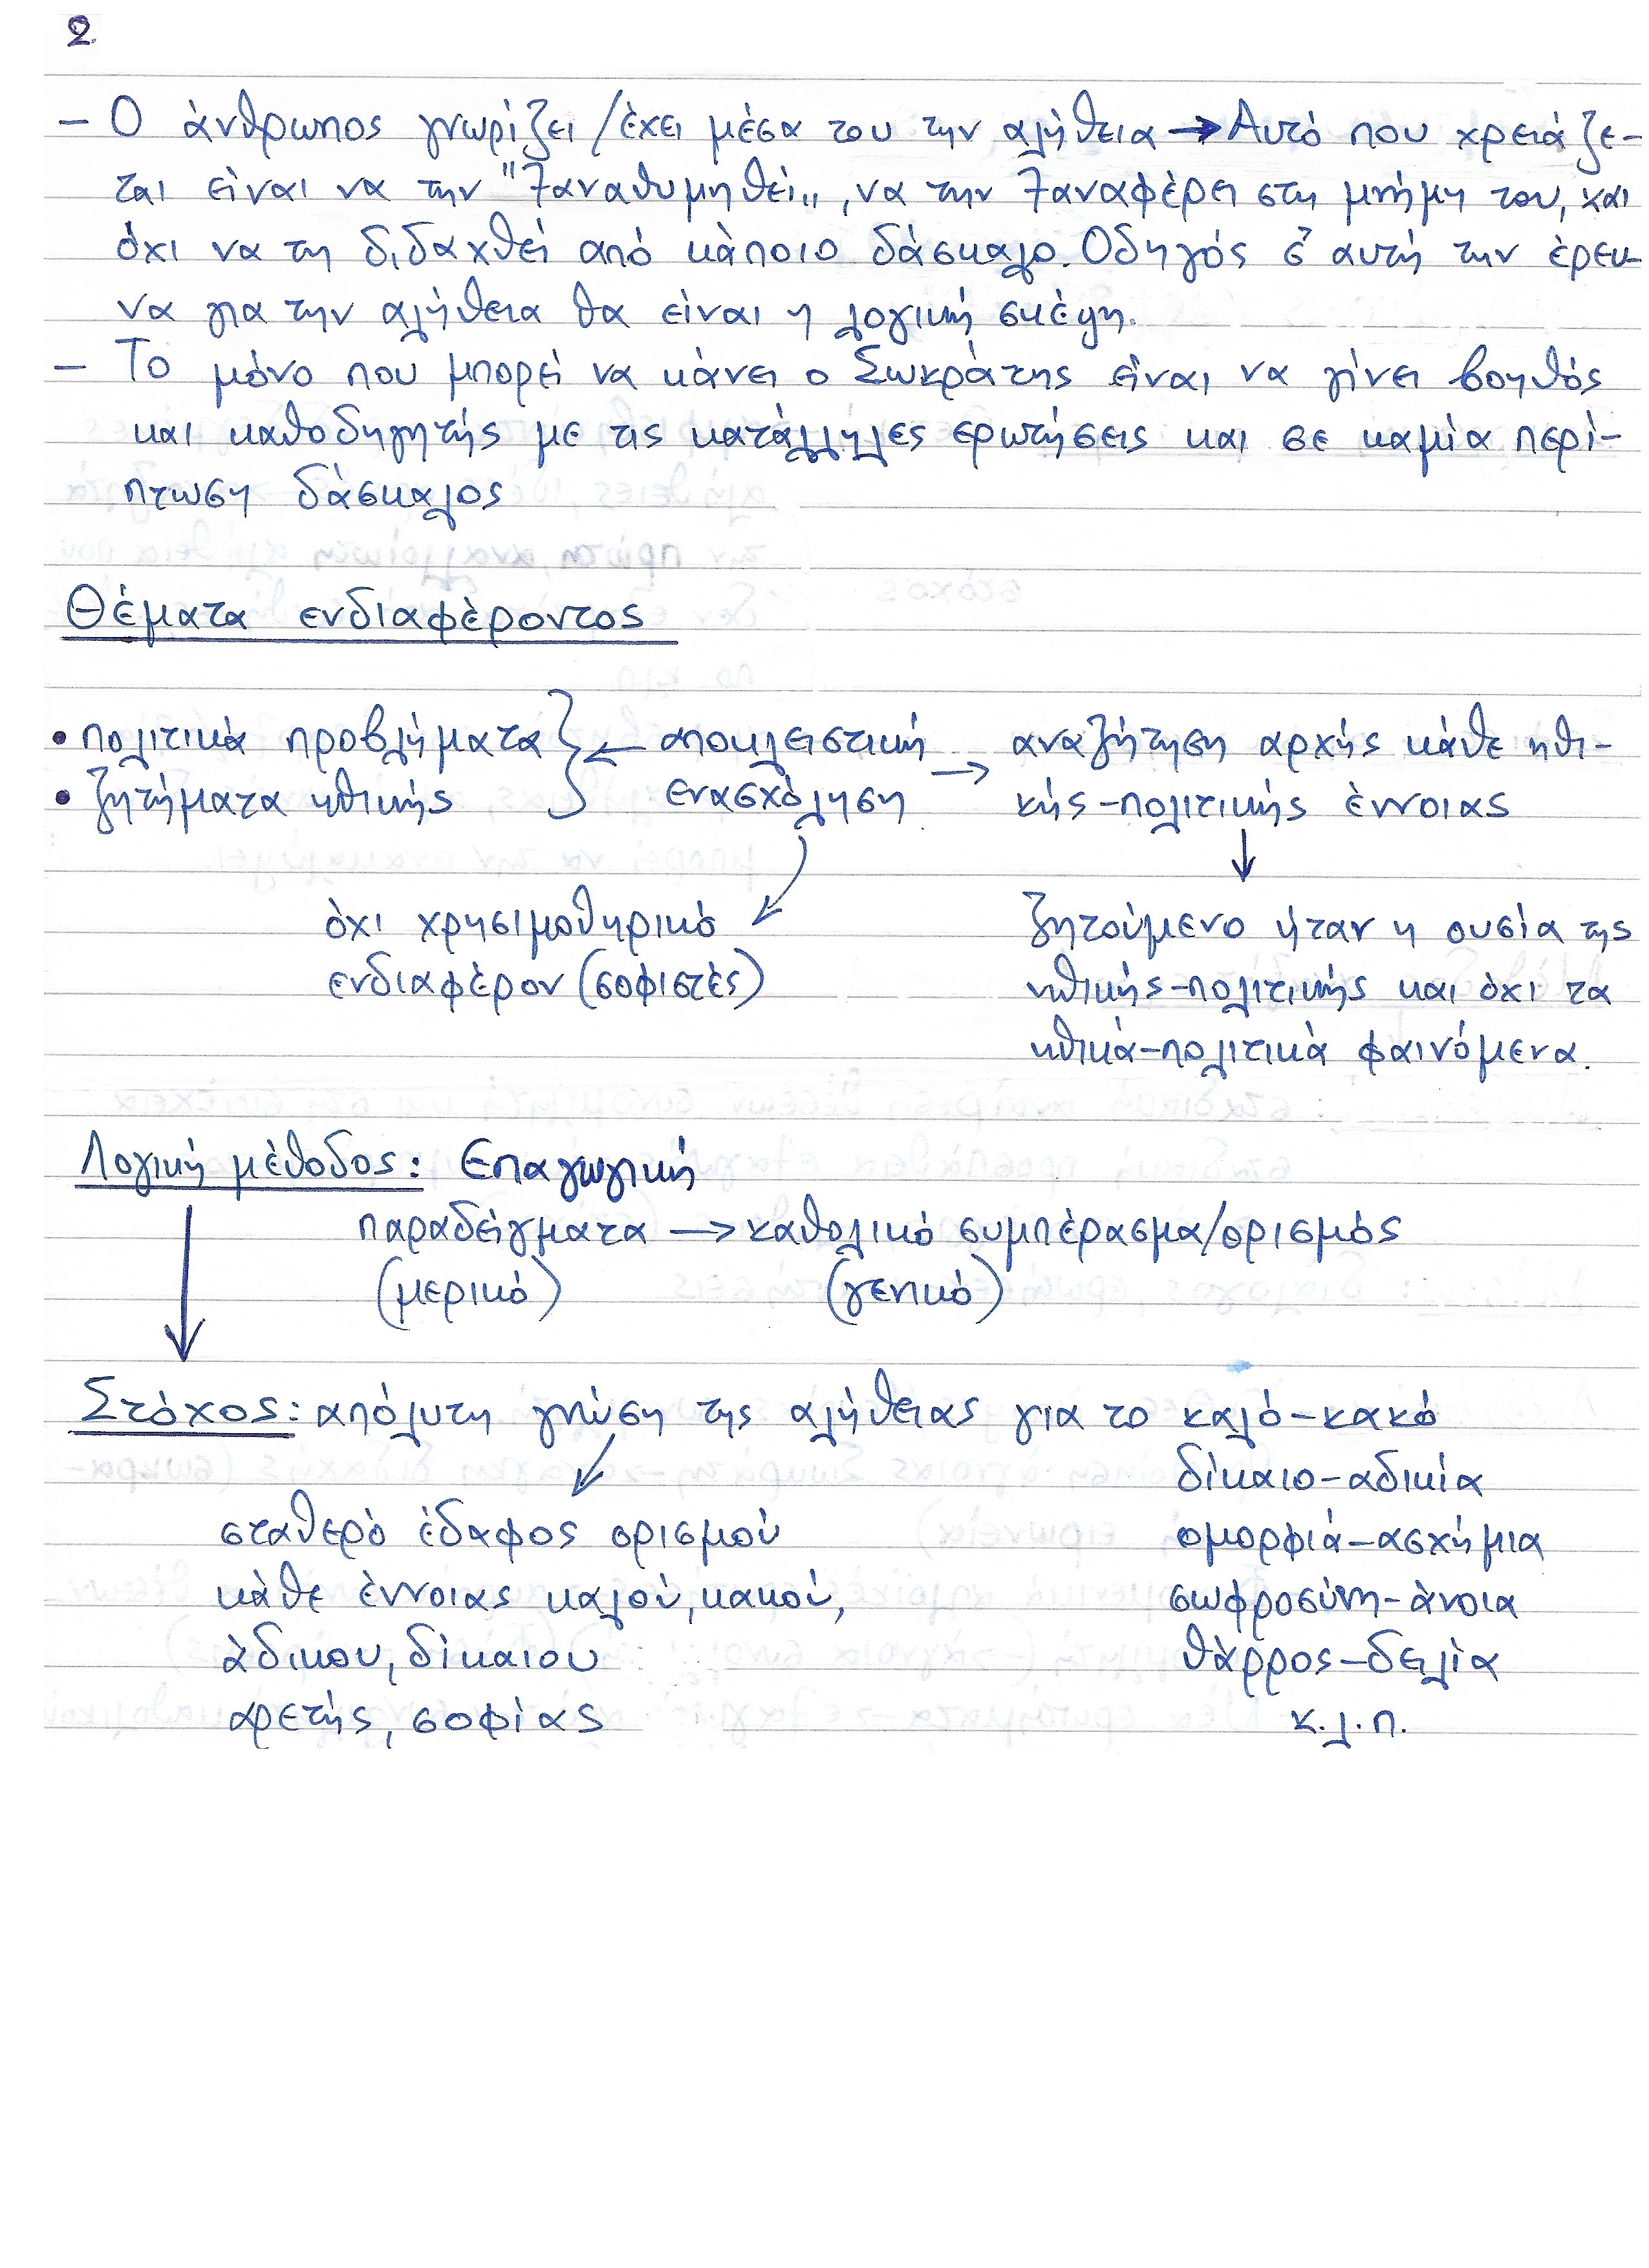 2
– Ο άνθρωπος γνωρίζει/έχει μέσα του την αλήθεια → Αυτό που χρειάζε-
ται είναι να την "ξαναθυμηθεί", να την ξαναφέρει στη μνήμη του, και
όχι να τη διδαχθεί από κάποιο δάσκαλο. Οδηγός σ' αυτή την έρευ-
να για την αλήθεια θα είναι η λογική σκέψη.
– Το μόνο που μπορεί να κάνει ο Σωκράτης είναι να γίνει βοηθός
και καθοδηγητής με τις κατάλληλες ερωτήσεις και σε καμία περί-
πτωση δάσκαλος
Θέματα ενδιαφέροντος
• πολιτικά προβλήματα } ← αποκλειστική → αναζήτηση αρχής κάθε ηθι-
• ζητήματα ηθικής ενασχόληση κής-πολιτικής έννοιας
όχι χρησιμοθηρικό ζητούμενο ήταν η ουσία της
ενδιαφέρον (σοφιστές) ηθικής-πολιτικής και όχι τα
ηθικά-πολιτικά φαινόμενα.
Λογική μέθοδος: Επαγωγική
παραδείγματα → καθολικό συμπέρασμα/ορισμός
(μερικό) (γενικό)
Στόχος: απόλυτη γνώση της αλήθειας για το καλό-κακό
δίκαιο-αδικία
σταθερό έδαφος ορισμού ομορφιά-ασχήμια
κάθε έννοιας καλού, κακού, σωφροσύνη-άνοια
άδικου, δίκαιου θάρρος-δειλία
αρετής, σοφίας κ.λ.π.